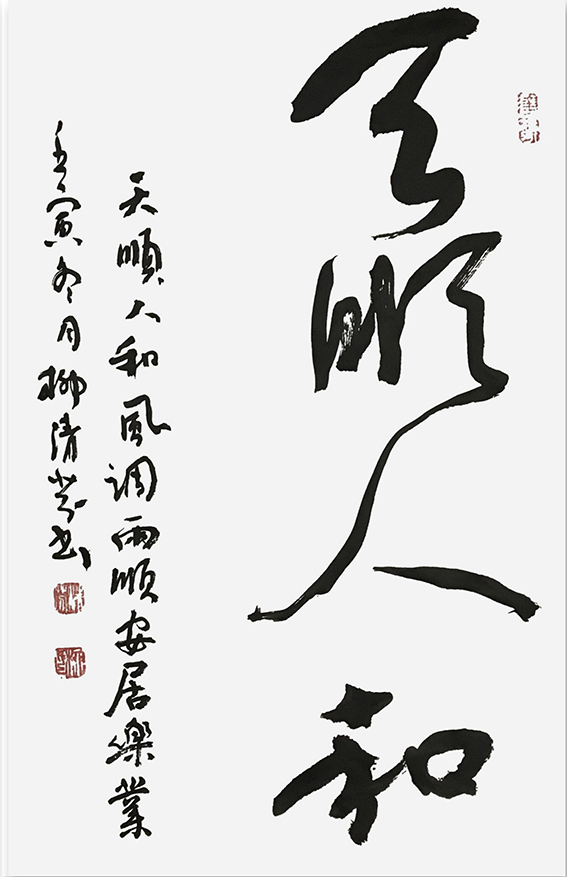 天順人和
天順人和風調雨順安居樂業
壬寅冬月柳清棠書